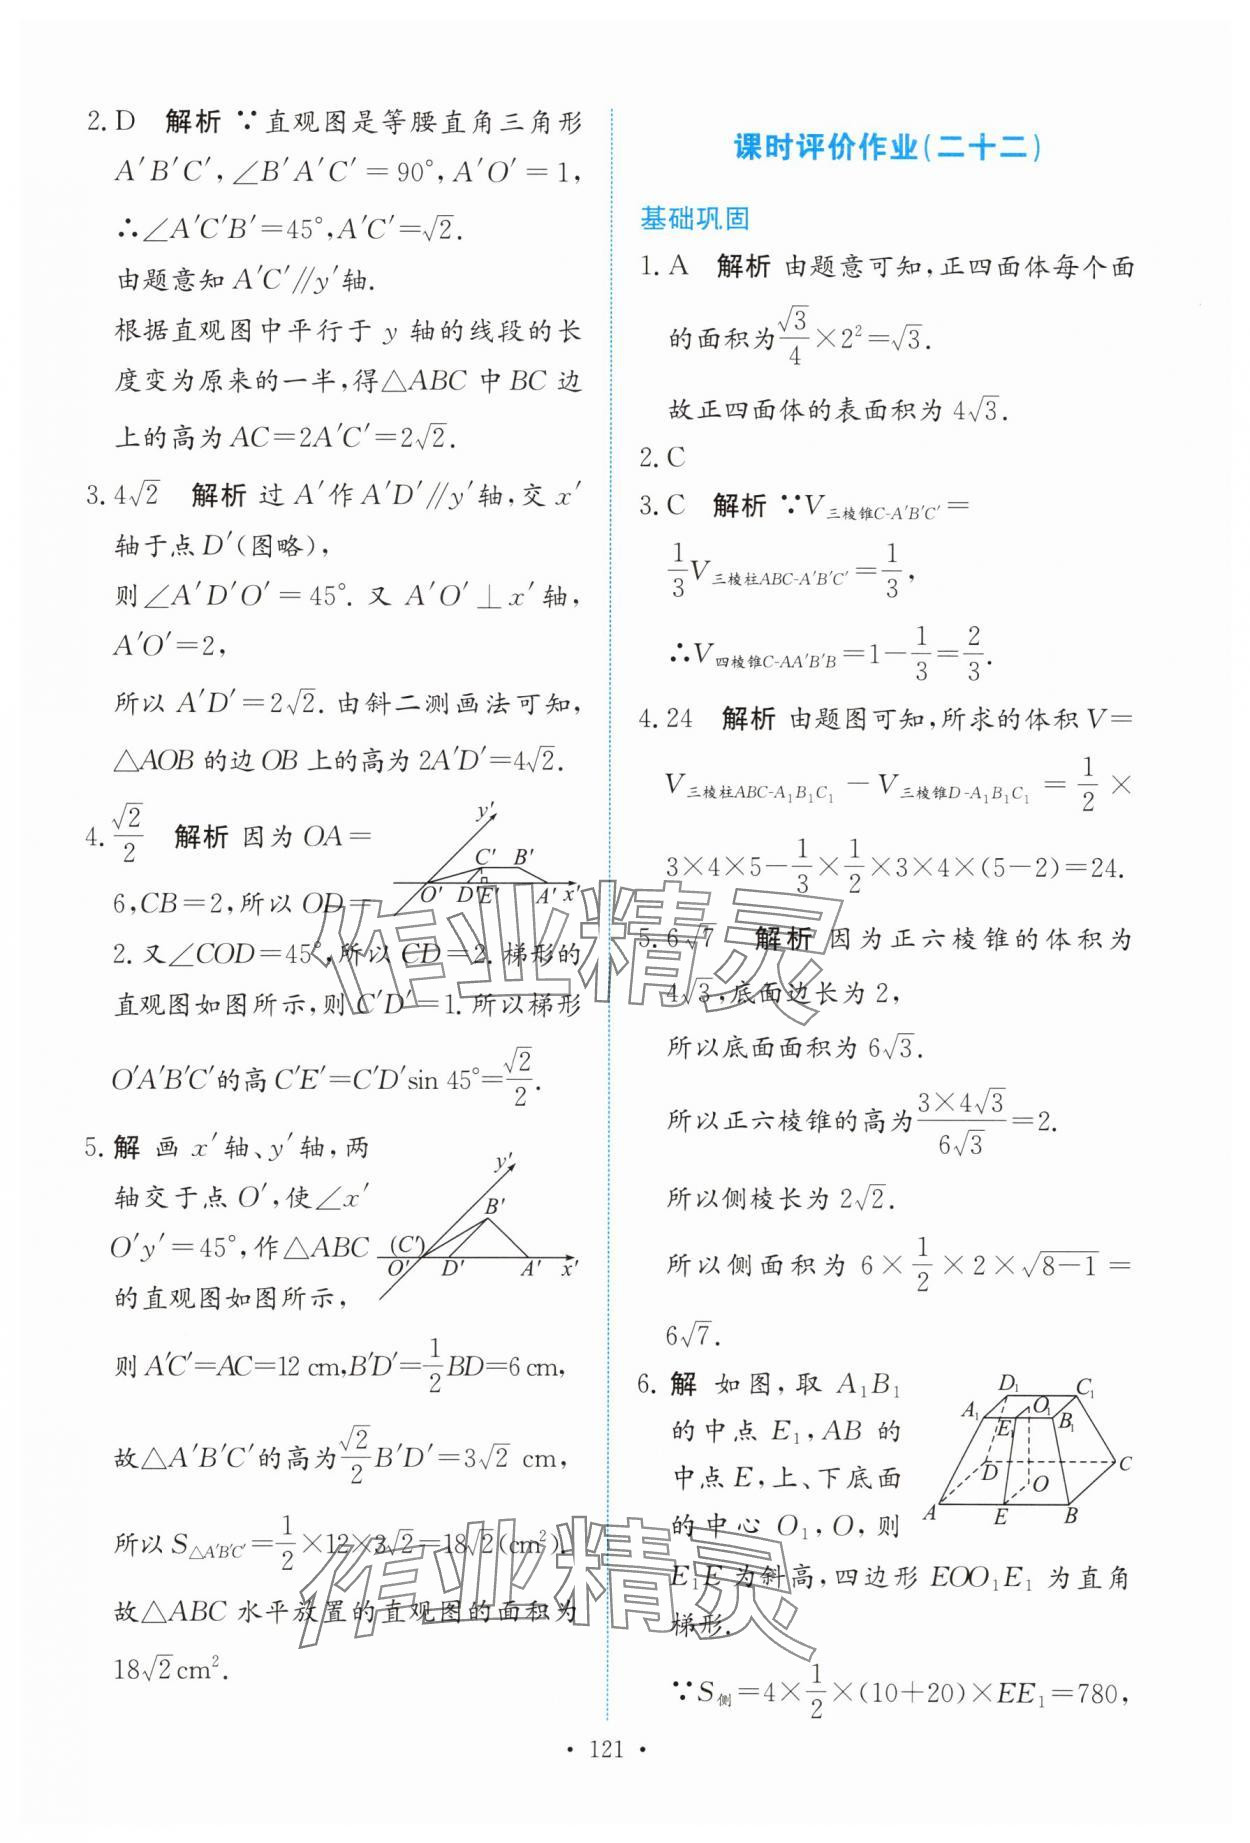 2. D 解析 ∵直观图是等腰直角三角形
A′B′C′,∠B′A′C′=90°,A′O′=1,
∴∠A′C′B′=45°,A′C′=√2.
由题意知 A′C′∥y′轴.
根据直观图中平行于 y 轴的线段的长
度变为原来的一半,得△ABC 中 BC 边
上的高为 AC=2A′C′=2√2.
3. 4√2 解析 过 A′作 A′D′∥y′轴,交 x′
轴于点 D′(图略),
则∠A′D′O′=45°. 又 A′O′⊥x′轴,
A′O′=2,
所以 A′D′=2√2. 由斜二测画法可知,
△AOB 的边 OB 上的高为 2A′D′=4√2.
4. √2/2 解析 因为 OA=
6,CB=2,所以 OD=
2. 又∠COD=45°,所以 CD=2. 梯形的
直观图如图所示,则 C′D′=1. 所以梯形
O′A′B′C′的高 C′E′=C′D′sin 45°=√2/2.
y′
C′ B′
O′ D′ E′ A′ x′
5. 解 画 x′轴、y′轴,两
轴交于点 O′,使∠x′
O′y′=45°,作△ABC
的直观图如图所示,
y′
B′
(C′)
O′ D′ A′ x′
则 A′C′=AC=12 cm,B′D′=1/2BD=6 cm,
故△A′B′C′的高为√2/2B′D′=3√2 cm,
所以 S△A′B′C′=1/2×12×3√2=18√2(cm²).
故△ABC 水平放置的直观图的面积为
18√2cm².
课时评价作业(二十二)
基础巩固
1. A 解析 由题意可知,正四面体每个面
的面积为√3/4×2²=√3.
故正四面体的表面积为 4√3.
2. C
3. C 解析 ∵V三棱锥C-A′B′C′=
1/3V三棱柱ABC-A′B′C′=1/3,
∴V四棱锥C-AA′B′B=1-1/3=2/3.
4. 24 解析 由题图可知,所求的体积 V=
V三棱柱ABC-A₁B₁C₁-V三棱锥D-A₁B₁C₁=1/2×
3×4×5-1/3×1/2×3×4×(5-2)=24.
5. 6√7 解析 因为正六棱锥的体积为
4√3,底面边长为 2,
所以底面面积为 6√3.
所以正六棱锥的高为3×4√3/6√3=2.
所以侧棱长为 2√2.
所以侧面积为 6×1/2×2×√8-1=
6√7.
6. 解 如图,取 A₁B₁
的中点 E₁,AB 的
中点 E,上、下底面
的中心 O₁,O,则
E₁E 为斜高,四边形 EOO₁E₁ 为直角
梯形.
D₁ C₁
A₁ O₁
E₁ B₁
D C
O
A E B
∵S侧=4×1/2×(10+20)×EE₁=780,
• 121 •
作业精灵
作业精灵